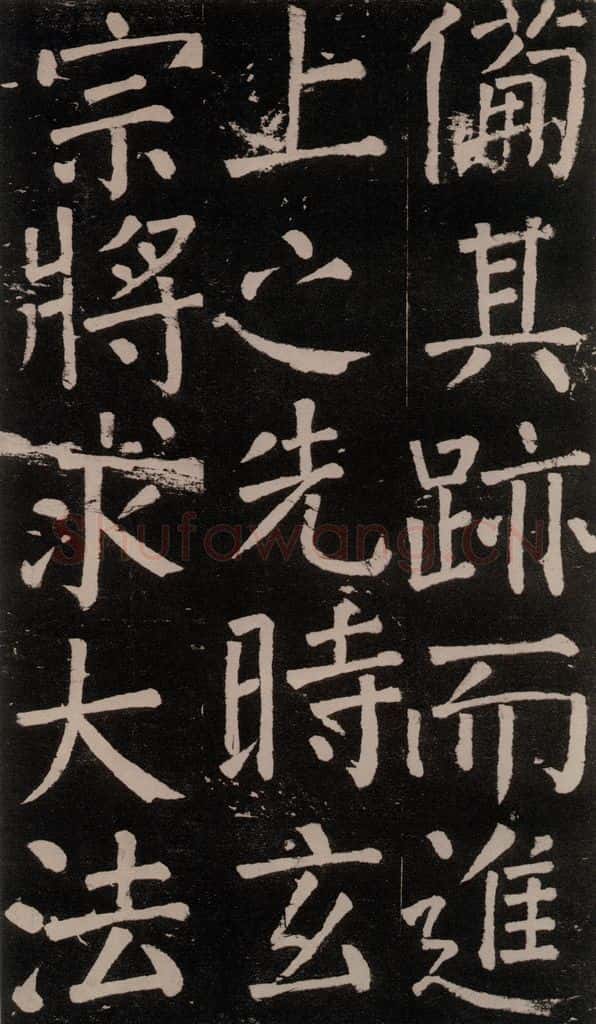 備其跡而進
上之先時玄
宗將求大法
Shufawang.CN